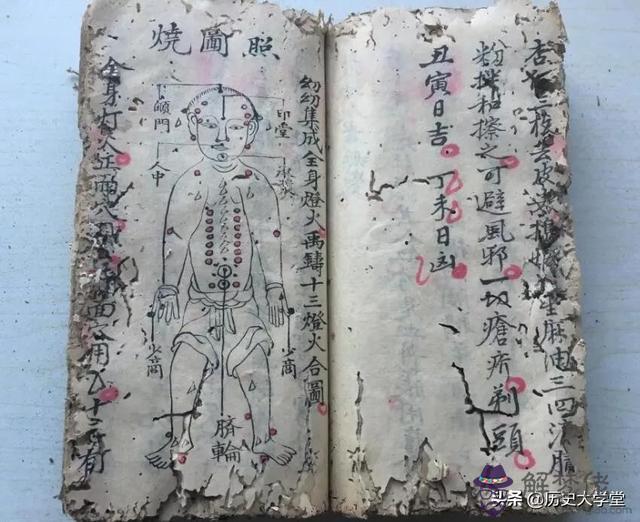 三枚去皮尖
生麻油三四滴膩
粉拌和擦之可避風邪一切瘡疥剃頭
丑寅日吉 丁未日凶
照圖燒
幼幼集成全身燈火禹鑄十三燈火合圖
印堂
顖門
人中
少商
少商
臍輪
全身灯火
解梦佬
头条 @历史大学堂